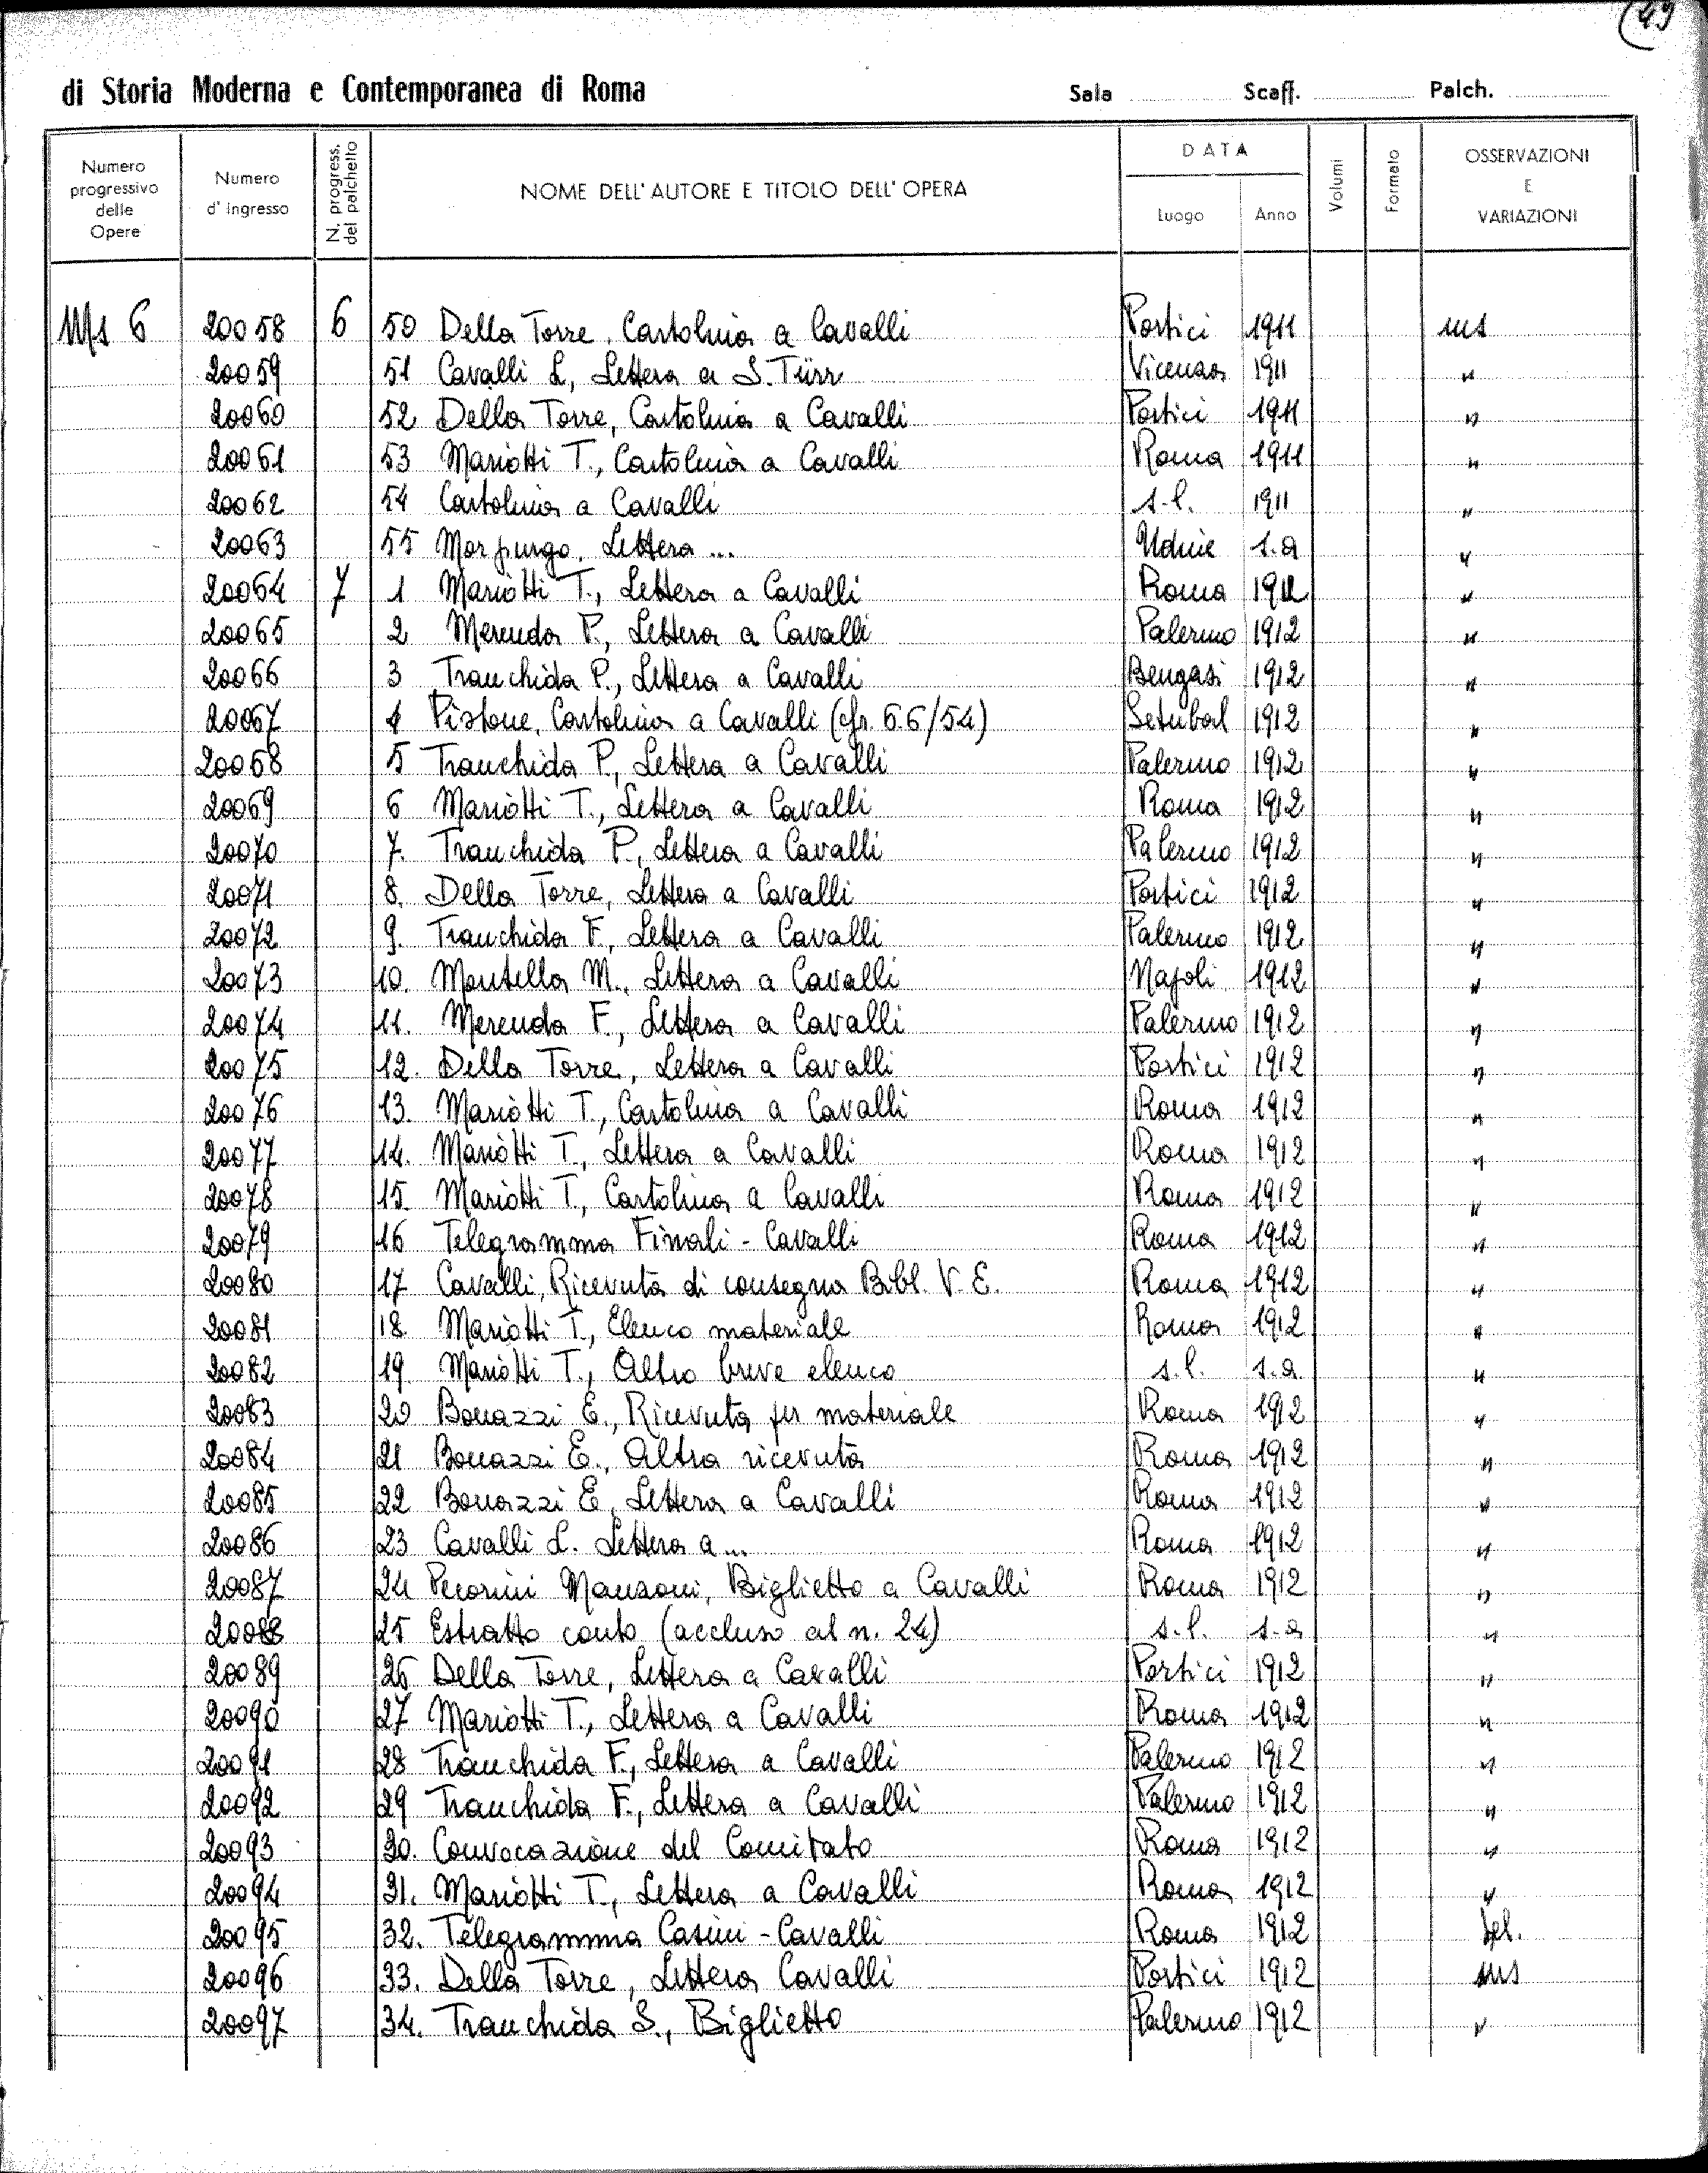 49
di Storia Moderna e Contemporanea di Roma Sala Scaff. Palch.
Numero progressivo delle Opere
Numero d' Ingresso
N. progress. del palchetto
NOME DELL' AUTORE E TITOLO DELL' OPERA
DATA
Luogo
Anno
Volumi
Formato
OSSERVAZIONI E VARIAZIONI
Ms 6 20058 6 50 Della Torre, Cartolina a Cavalli Portici 1911 ms
20059 51 Cavalli L, Lettera a S. Türr Vicenza 1911 "
20060 52 Della Torre, Cartolina a Cavalli Portici 1911 "
20061 53 Mariotti T., Cartolina a Cavalli Roma 1911 "
20062 54 Cartolina a Cavalli s.l. 1911 "
20063 55 Morpurgo, Lettera ... Udine s.a "
20064 7 1 Mariotti T., Lettera a Cavalli Roma 1912 "
20065 2 Merenda P., Lettera a Cavalli Palermo 1912 "
20066 3 Tranchida P., Lettera a Cavalli Bengasi 1912 "
20067 4 Pistone, Cartolina a Cavalli (cfr. 6.6/54) Setubal 1912 "
20068 5 Tranchida P., Lettera a Cavalli Palermo 1912 "
20069 6 Mariotti T., Lettera a Cavalli Roma 1912 "
20070 7. Tranchida P., Lettera a Cavalli Palermo 1912 "
20071 8. Della Torre, Lettera a Cavalli Portici 1912 "
20072 9. Tranchida F., Lettera a Cavalli Palermo 1912 "
20073 10. Montella M., Lettera a Cavalli Napoli 1912 "
20074 11. Merenda F., Lettera a Cavalli Palermo 1912 "
20075 12. Della Torre, Lettera a Cavalli Portici 1912 "
20076 13. Mariotti T., Cartolina a Cavalli Roma 1912 "
20077 14. Mariotti T., Lettera a Cavalli Roma 1912 "
20078 15. Mariotti T., Cartolina a Cavalli Roma 1912 "
20079 16 Telegramma Finali - Cavalli Roma 1912 "
20080 17 Cavalli, Ricevuta di consegna Bibl. V. E. Roma 1912 "
20081 18. Mariotti T., Elenco materiale Roma 1912 "
20082 19. Mariotti T., Altro breve elenco s.l. s.a. "
20083 20 Bonazzi E., Ricevuta per materiale Roma 1912 "
20084 21 Bonazzi E., Altra ricevuta Roma 1912 "
20085 22 Bonazzi E, Lettera a Cavalli Roma 1912 "
20086 23 Cavalli L. Lettera a ... Roma 1912 "
20087 24 Pecorini Manzoni, Biglietto a Cavalli Roma 1912 "
20088 25 Estratto conto (accluso al n. 24) s.l. s.a "
20089 26 Della Torre, Lettera a Cavalli Portici 1912 "
20090 27 Mariotti T., Lettera a Cavalli Roma 1912 "
20091 28 Tranchida F., Lettera a Cavalli Palermo 1912 "
20092 29 Tranchida F., Lettera a Cavalli Palermo 1912 "
20093 30. Convocazione del Comitato Roma 1912 "
20094 31. Mariotti T., Lettera a Cavalli Roma 1912 "
20095 32. Telegramma Casini - Cavalli Roma 1912
20096 33. Della Torre, Lettera Cavalli Portici 1912 ms
20097 34. Tranchida S., Biglietto Palermo 1912 "